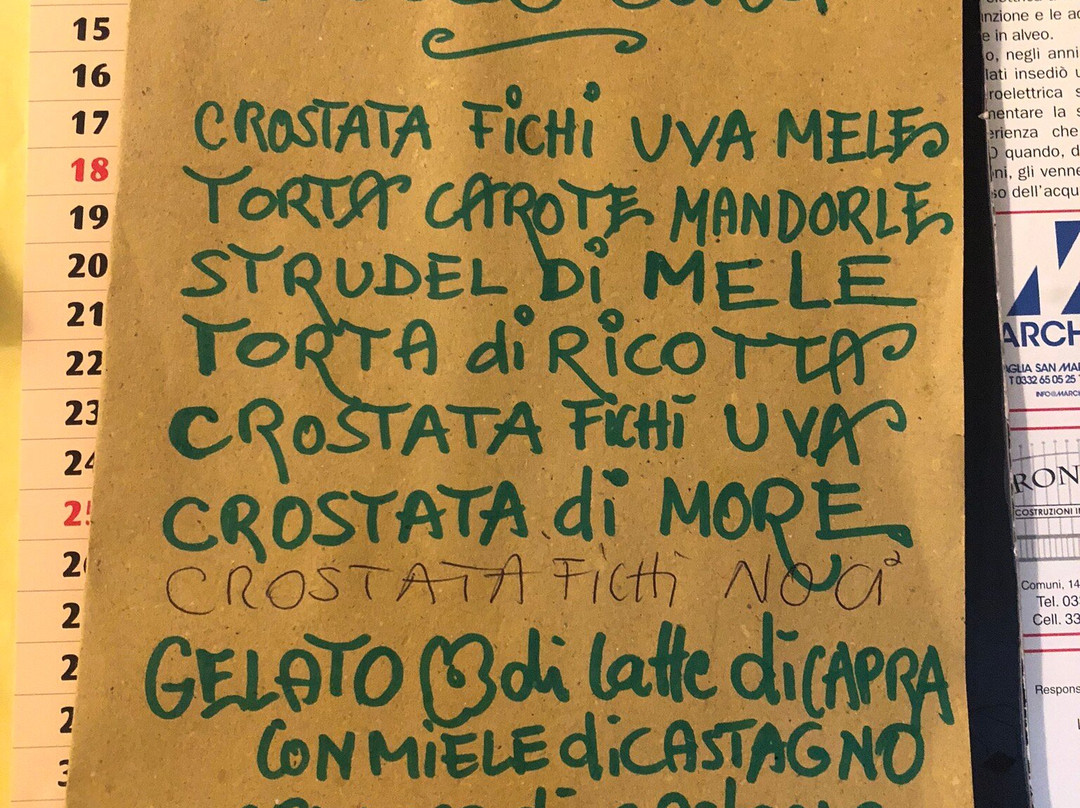 15
16
17
18
19
20
21
22
23
24
CROSTATA FiCHi UVA MELE
TORTA CAROTE MANDORLE
STRUDEL Di MELE
TORTA di RiCOTTA
CROSTATA FiCHi UVA
CROSTATA di MORE
CROSTATA FiCHi NOCi
GELATO di latte di CAPRA
CON MIELE di CASTAGNO
nzione e le
e in alveo.
o, negli anni
lati insediò
roelettrica s
mentare la s
erienza che
quando, d
ni, gli venne
so dell'acqu
ARCH
GLIA SAN MAR
T 0332 65 05 25
INFO@MARC
RON
COSTRUZIONI I
Comuni, 14
Tel. 03
Cell. 33
Respons